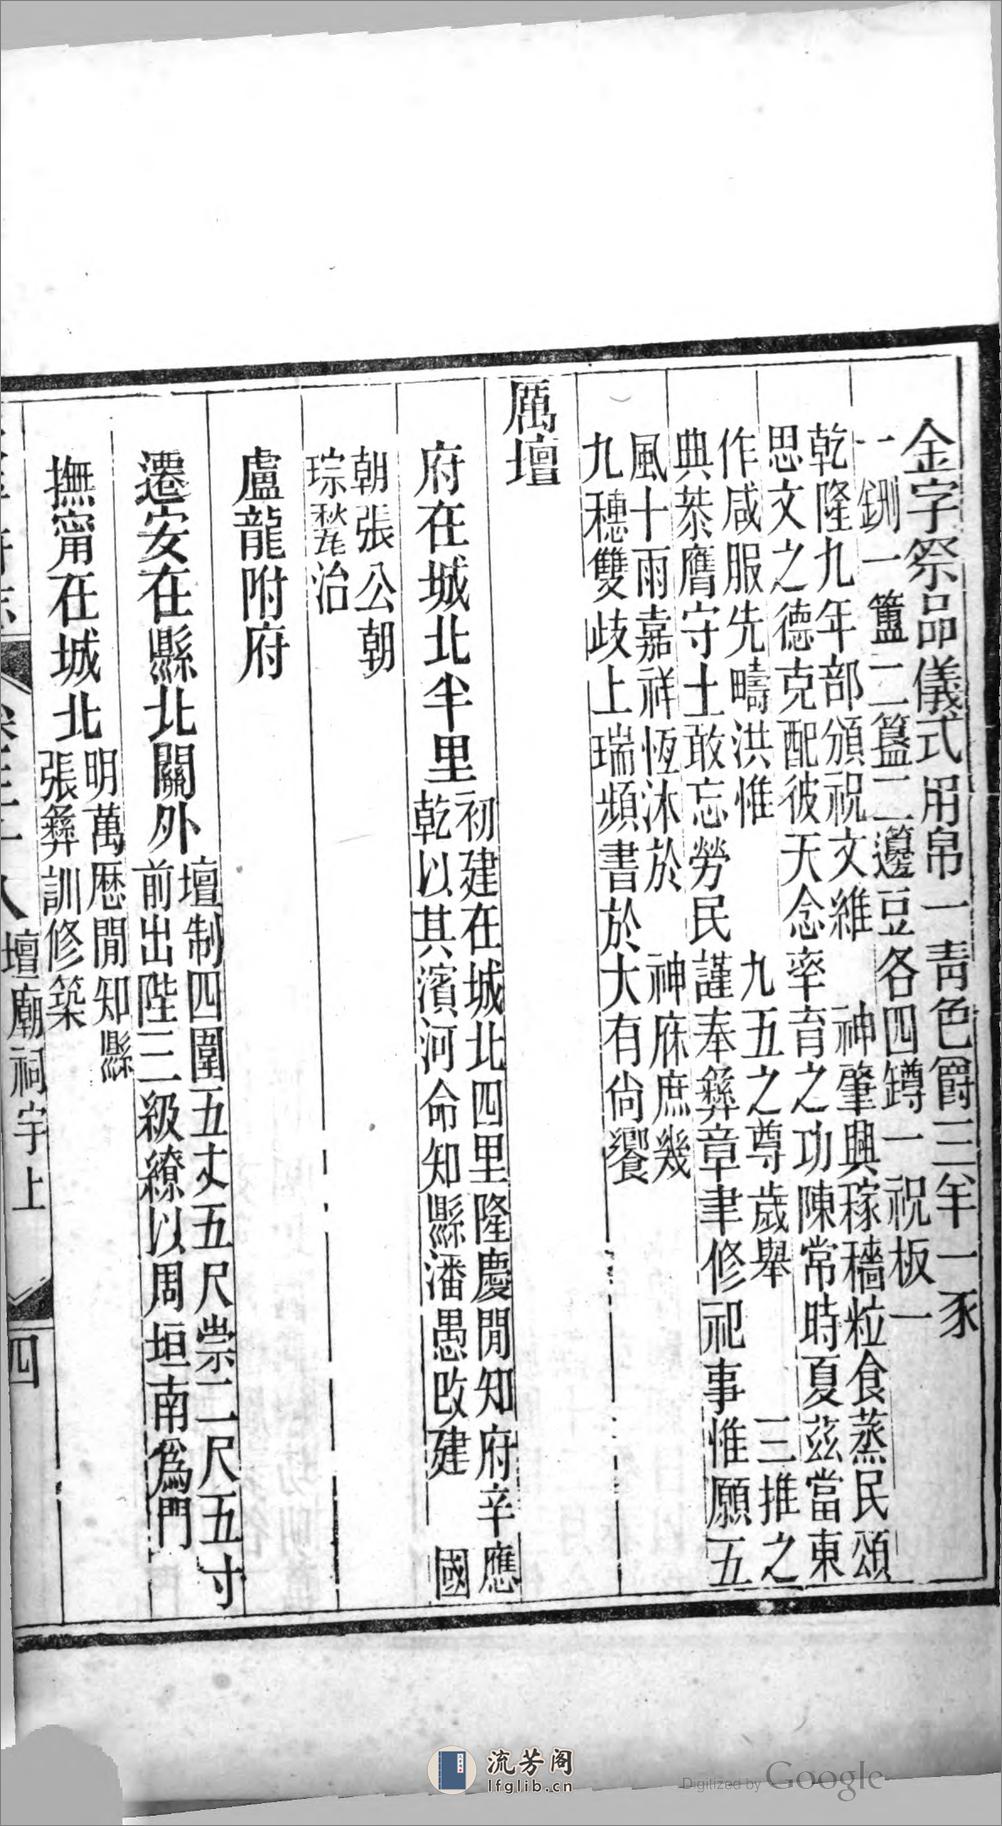 金字祭品儀式用帛一青色爵三羊一豕
一鉶一簠二簋二籩豆各四罇一祝板一
乾隆九年部頒祝文維　神肇興稼穡粒食蒸民頌
思文之德克配彼天念率育之功陳常時夏茲當東
作咸服先疇洪惟　九五之尊歲舉　三推之
典恭膺守土敢忘勞民謹奉彝章聿修祀事惟願五
風十雨嘉祥恆沐於　神庥庶幾
九穗雙歧上瑞頻書於大有尚饗
厲壇
府在城北半里
初建在城北四里隆慶閒知府辛應
乾以其濱河命知縣潘愚改建　國
朝張公朝
琮甃治
盧龍附府
遷安在縣北關外
壇制四圍五丈五尺崇二尺五寸
前出陛三級繚以周垣南爲門
撫甯在城北
明萬歷閒知縣
張彝訓修築
壇廟祠宇上
四
流芳阁
lfglib.cn
Digitized by Google